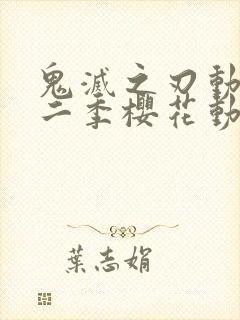 鬼滅之刃動
二季櫻花動
葉志娟